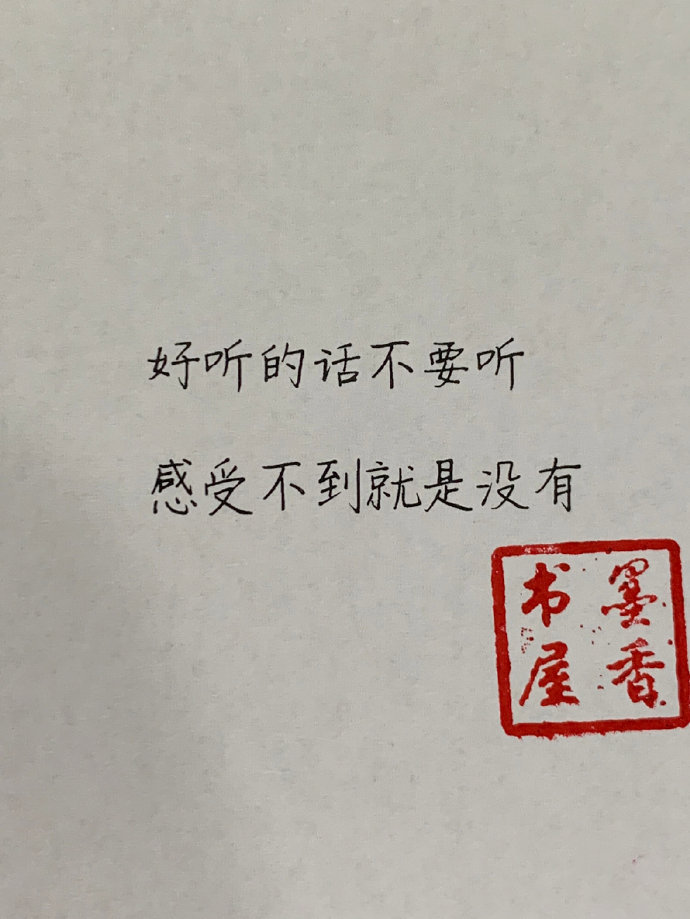 好听的话不要听
感受不到就是没有
墨香
书屋